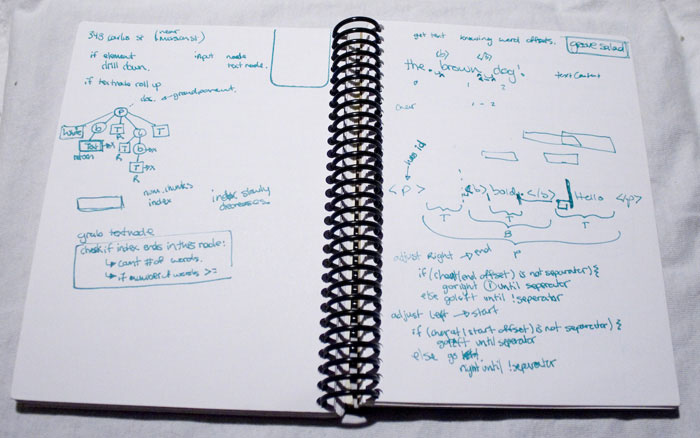 343 carlos st (near mason st)
if element input node
drill down. text node.
if textnode roll up
doc. grandparent.
P
b T T
T b
R R
T
R
num. chunks
index
index slowly
decreases
grab textnode
check if index ends in this node:
↳ count # of words.
↳ if number of words >=
get text knowing word offsets.
groove salad
(b) (/b)
the brown dog! text content
1 2
has id
<P> <b> bold </b> Hello </p>
T T T
B
P
adjust Right → end
if (charat(end offset) is not separator) {
go right 1 until seperator
else go left until !seperator
adjust Left → start
if (charat(start offset) is not separator) {
go left until seperator
else go
right until !seperator